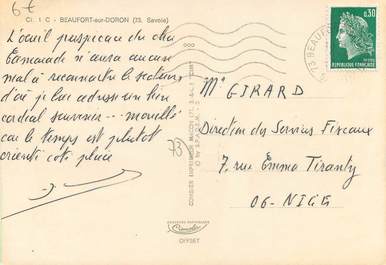 6€
Cl. I C - BEAUFORT-sur-DORON (73. Savoie)
L'ouïl perspicace du cha
Esmerade si aura aucun
mal à reconnaître le secteur
d'où je lui adresse un bien
cordial souvenir ... mouillé
car le temps est plutôt
orienté coté pluie
73
COMBIER IMPRIMEUR MACON
73 BEAUFORT
0,30
REPUBLIQUE FRANÇAISE
Mr GIRARD
Direction des Services Fiscaux
7, rue Emma Tiranty
06-NICE
OFFSET